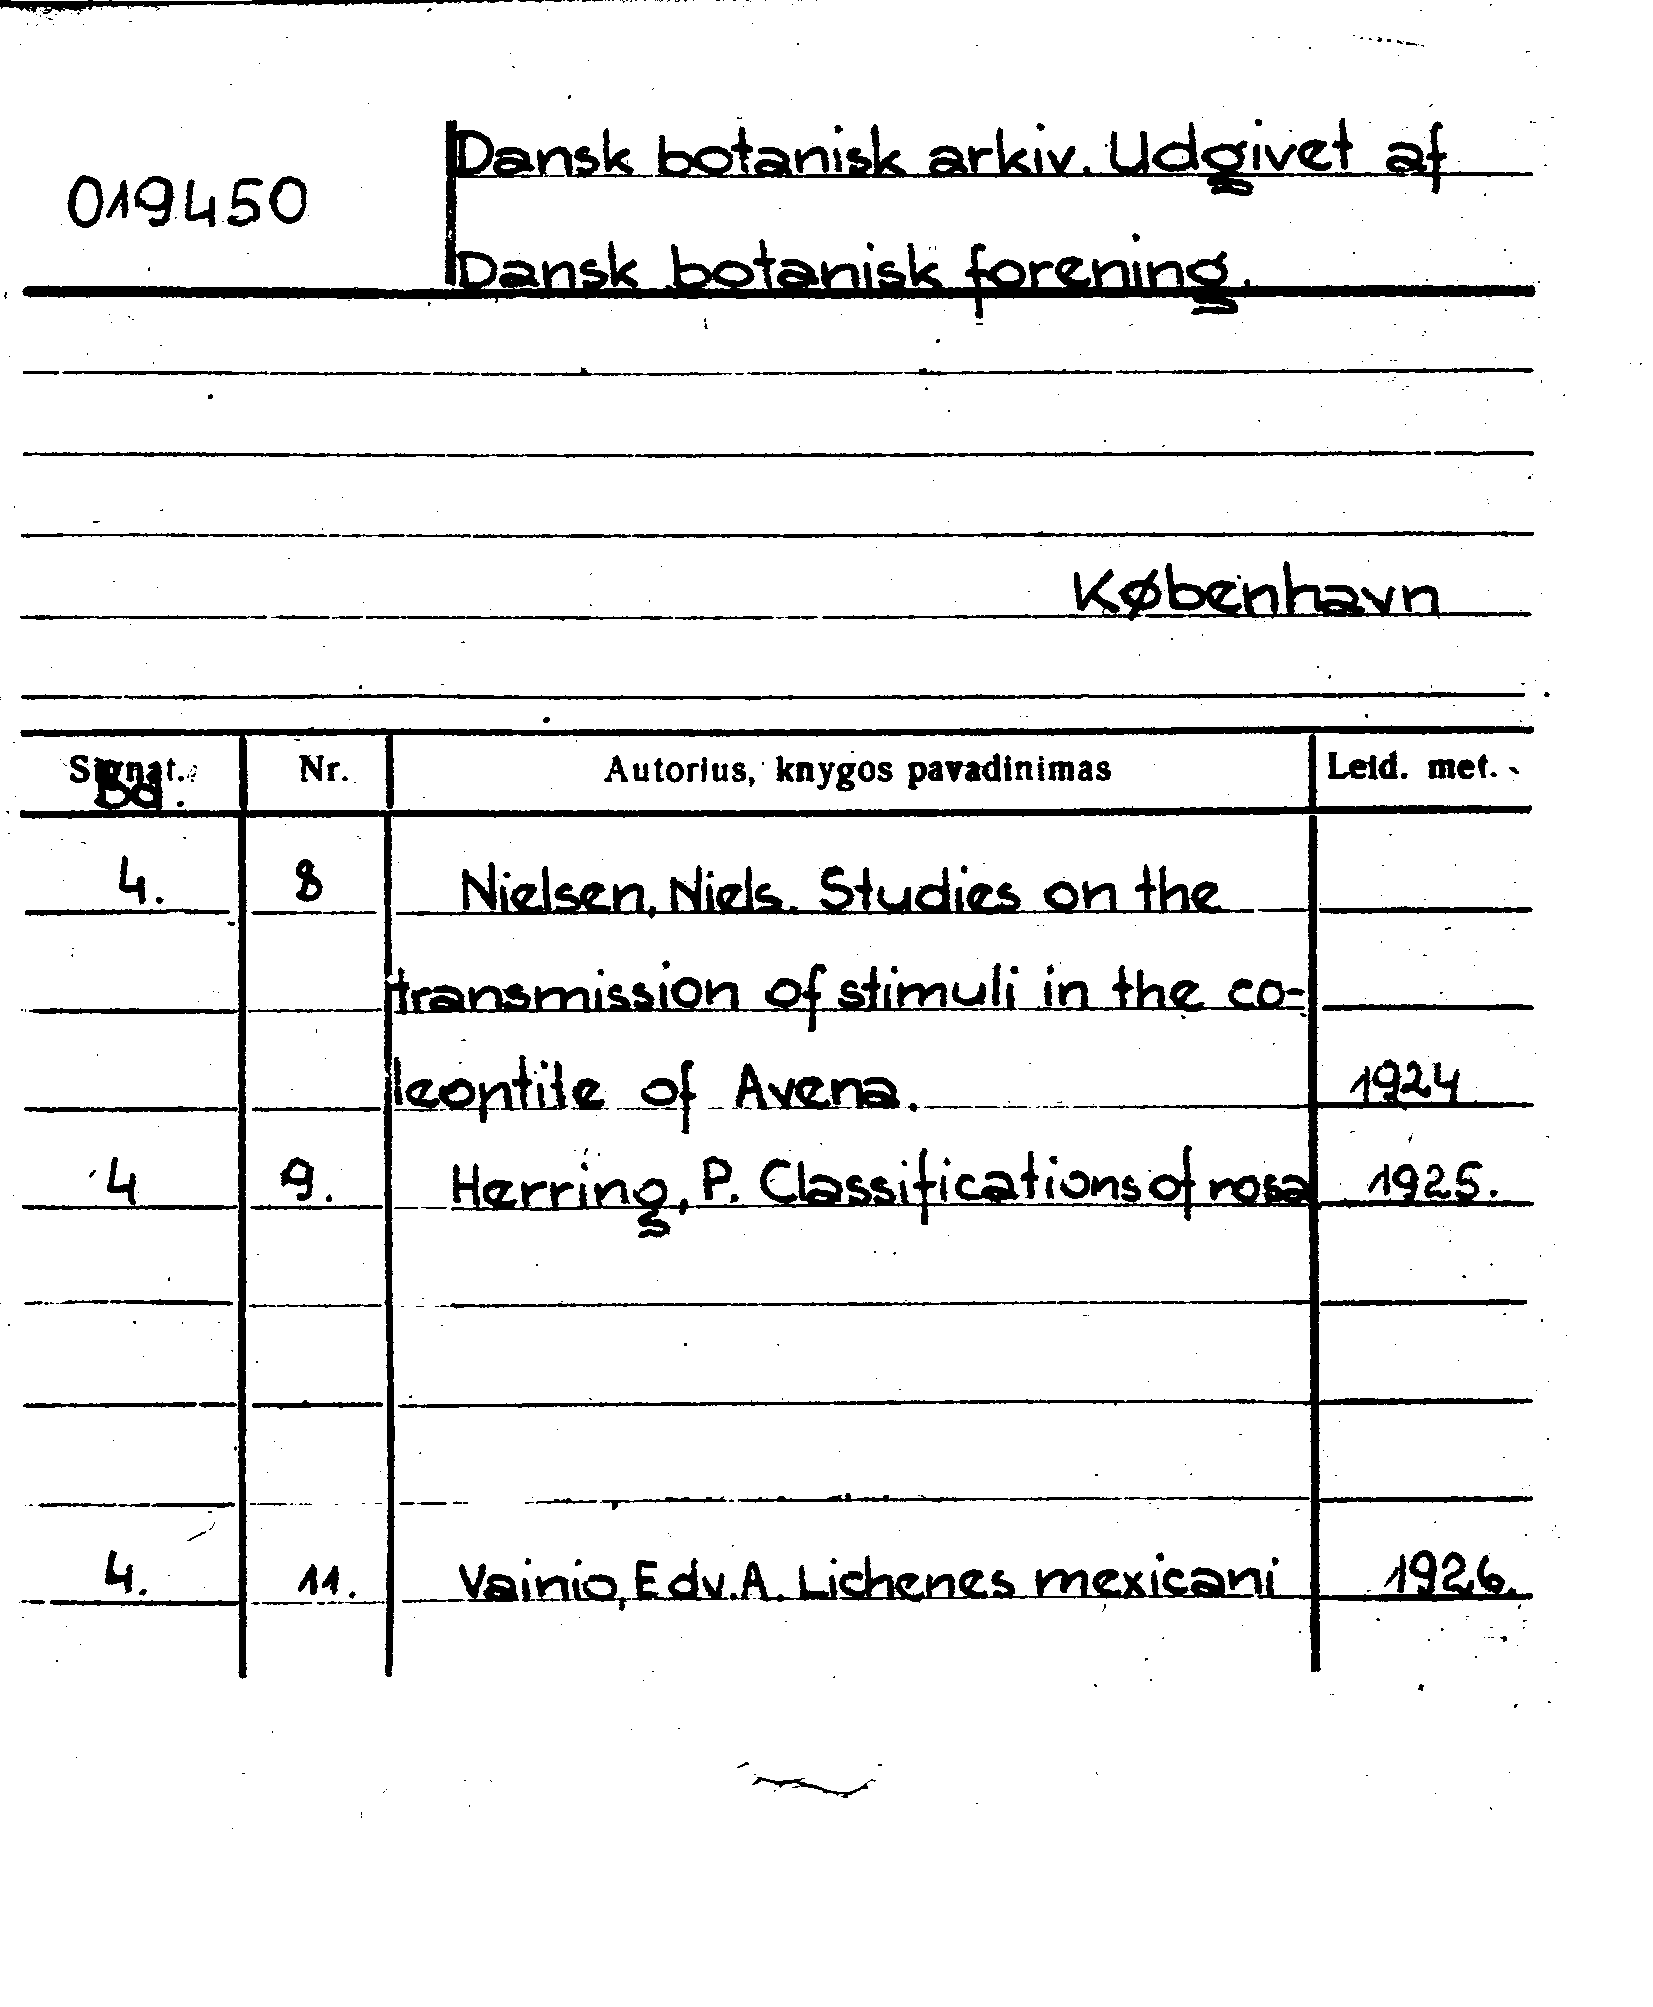 Dansk botanisk arkiv. Udgivet af
019450
Dansk botanisk forening.
København
Signat. Nr. Autorius, knygos pavadinimas Leid. met.
Bd.
4. 8 Nielsen, Niels. Studies on the
transmission of stimuli in the co-
leontile of Avena. 1924
4 9. Herring, P. Classifications of rosa 1925.
4. 11. Vainio, Edv. A. Lichenes mexicani 1926.